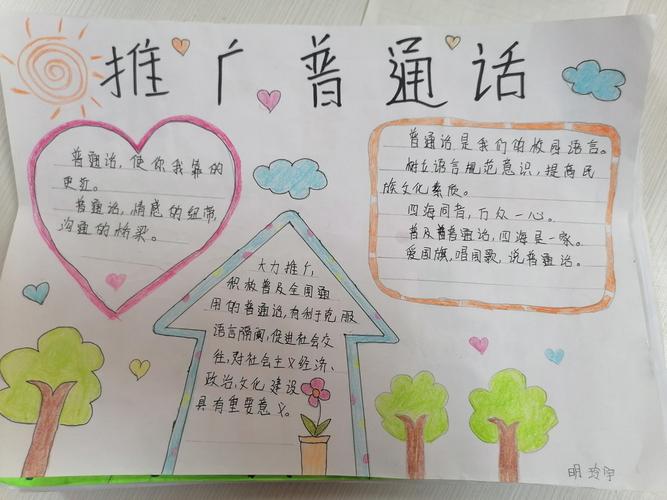 推广普通话
普通话，使你我靠的
更近。
普通话，情感的纽带，
沟通的桥梁。
普通话是我们的校园语言。
树立语言规范意识，提高民
族文化素质。
四海同音，万众一心。
普及普通话，四海是一家。
爱国旗，唱国歌，说普通话。
大力推广，
积极普及全国通
用的普通话，有利于克服
语言隔阂，促进社会交
往，对社会主义经济、
政治，文化建设
具有重要意义。
明玲宇